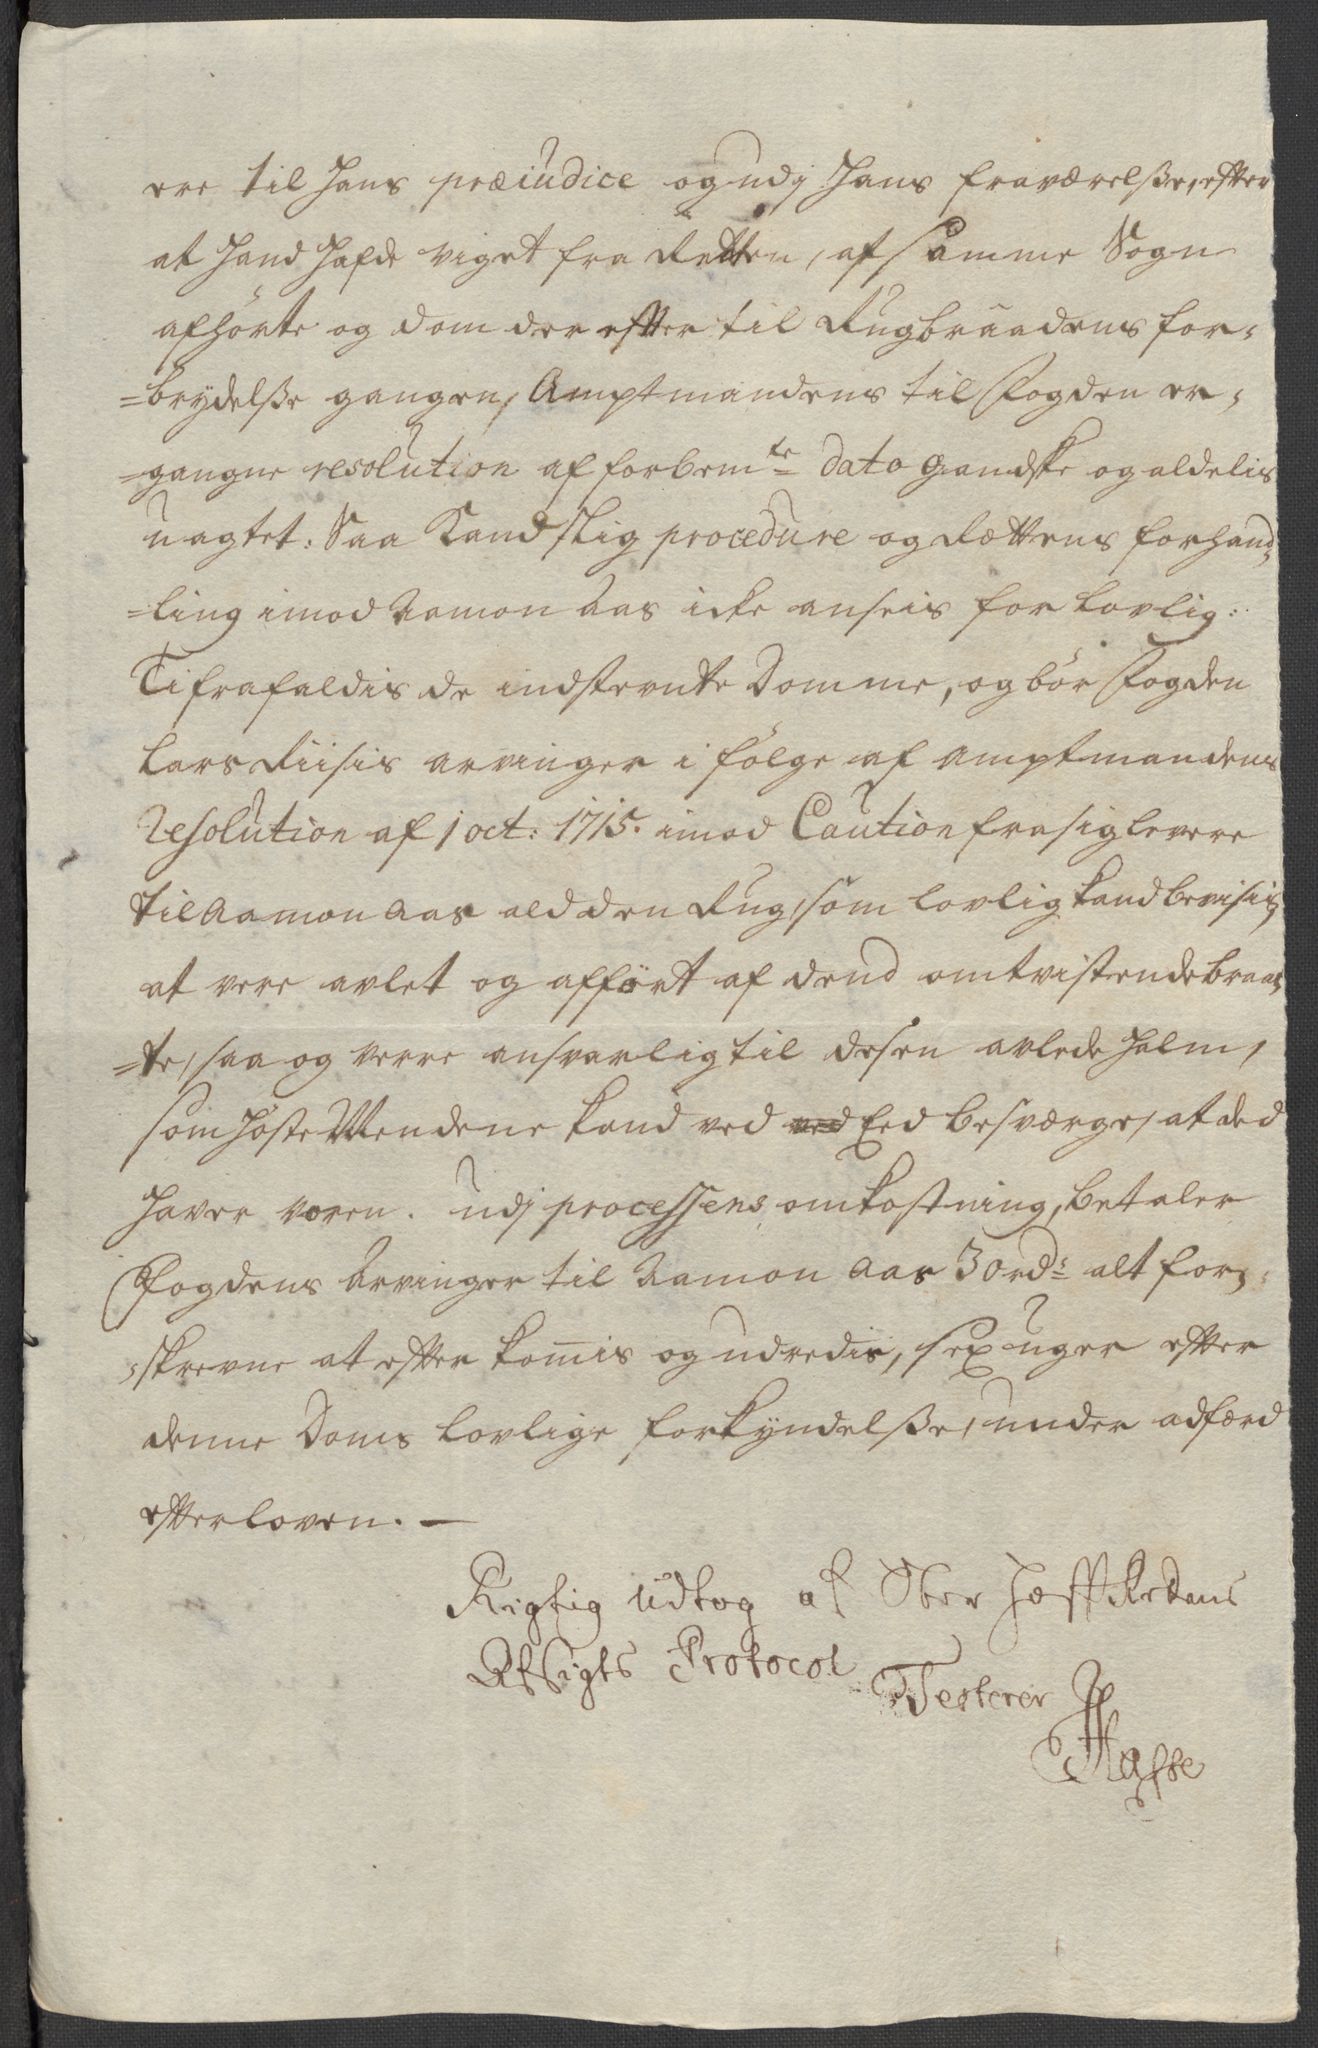 ere til hans præiudice og udj hans fraværelße, efter
at hand hafde viget fra Retten, af samme Sogn
afhörte og dom der efter til Rugbraadens for-
=brydelße gangen, Amptmandens til Fogden er-
=gangne resolution af forbemte dato gandske og aldelis
uagtet: Saa kand slig procedure og Rettens forhand-
=ling imod Aamon Aas icke anseis for lovlig:
Ti frafaldis de indstevnte Domme, og bör Fogden
Lars Riisis arvinger i fölge af Amptmandens
Resolution af 1 oct: 1715. imod Caution fra sig levere
til Aamon Aas ald den Rug, som lovlig kand bevisis,
at vere avlet og afført af dend omtvistende braa-
=te, saa og verre ansvarlig til desen avlede halm,
som höste Mendene kand ved Eed besværge, at ded
haver voren. Udj processens omkostning, betaler
Fogdens Arvinger til Aamon Aas 30 rdr alt for-
=skrevne at efterkom̄is og udredis, sex uger efter
denne Doms lovlige forkyndelße, under adfærd
efter loven. —
Rigtig udtog af Ober Hoff Rettens
Afsigts Protocol
Testerer
Hasse